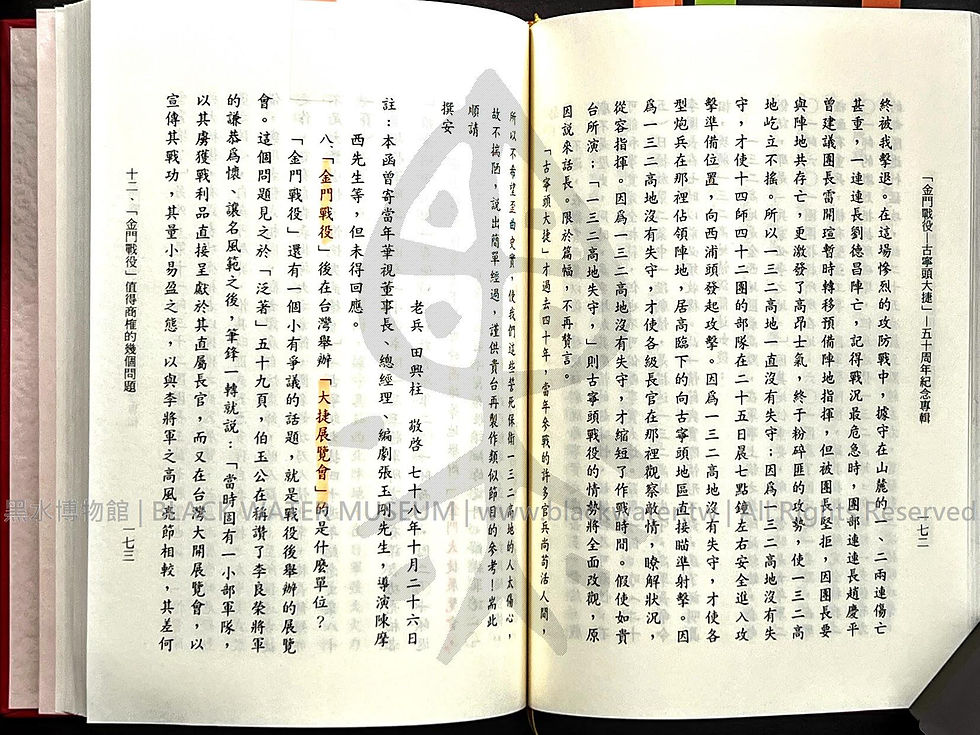 「金門戰役—古寧頭大捷」—五十周年紀念專輯
一七二
終被我擊退。在這場慘烈的攻防戰中，據守在山麓的一、二兩連傷亡
甚重，一連連長劉德昌陣亡，記得戰況最危急時，團部連連長趙慶平
曾建議團長雷開瑄暫時轉移預備陣地指揮，但被團長堅拒，因團長要
與陣地共存亡，更激發了高昂士氣，終于粉碎匪的攻勢，使一三二高
地屹立不搖。所以一三二高地一直沒有失守；因為一三二高地沒有失
守，才使十四師四十二團的部隊在二十五日晨七點鐘左右安全進入攻
擊準備位置，向西浦頭發起攻擊。因爲一三二高地沒有失守，才使各
型炮兵在那裡佔領陣地，居高臨下的向古寧頭地區直接瞄準射擊。因
爲一三二高地沒有失守，才使各級長官在那裡觀察敵情，瞭解狀況，
從容指揮。因爲一三二高地沒有失守，才縮短了作戰時間。假使如貴
台所演：「一三二高地失守，」則古寧頭戰役的情勢將全面改觀，原
因說來話長。限於篇幅，不再贅言。
「古寧頭大捷」才過去四十年，當年參戰的許多官兵尚苟活人間，
所以不希望歪曲史實，使我們這些誓死保衛一三二高地的人太傷心，
故不揣陋，說出簡單經過，謹供貴台再製作類似節目的參考！耑此
順請
撰安
老兵　田興柱　敬啓　七十八年十月二十六日
註：本函曾寄當年華視董事長、總經理、編劇張玉剛先生，導演陳摩
西先生等，但未得回應。
八、「金門戰役」後在台灣舉辦「大捷展覽會」的是什麼單位？
「金門戰役」還有一個小有爭議的話題，就是戰役後舉辦的展覽
會。這個問題見之於「泛著」五十九頁，伯玉公在稱讚了李良榮將軍
的謙恭爲懷、讓名風範之後，筆鋒一轉就說：「當時固有一小部軍隊，
以其虜獲戰利品直接呈獻於其直屬長官，而又在台灣大開展覽會，以
宣傳其戰功，其量小易盈之態，以與李將軍之高風亮節相較，其差何
十二、「金門戰役」值得商榷的幾個問題
一七三
黑水博物館 | BLACK WATER MUSEUM | www.blackwater.tw | All Rights Reserved